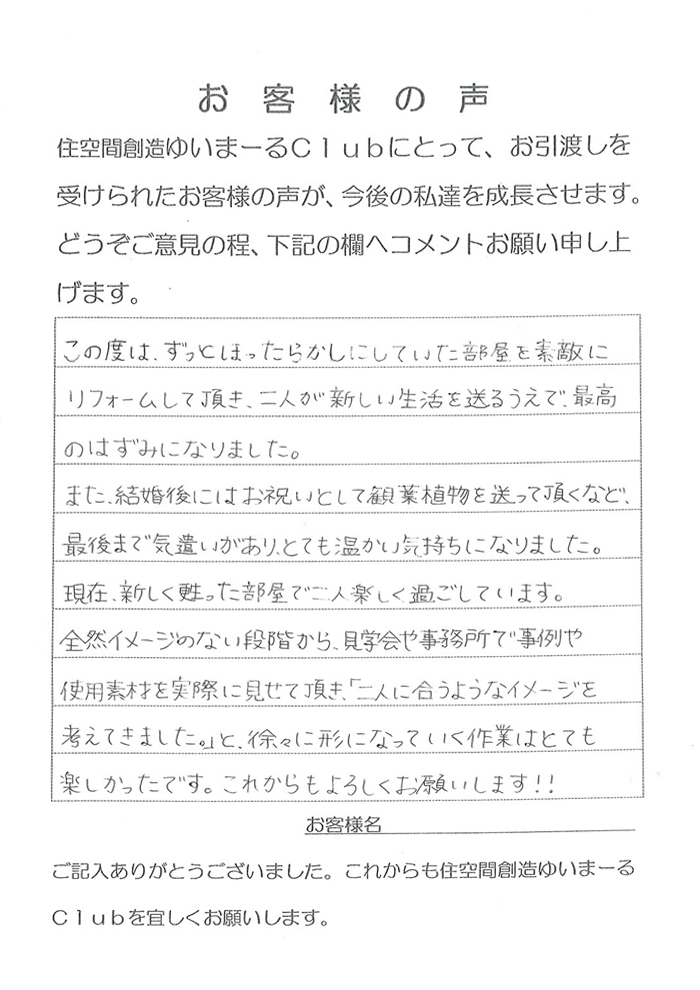 お客様の声
住空間創造ゆいまーるＣｌｕｂにとって、お引渡しを
受けられたお客様の声が、今後の私達を成長させます。
どうぞご意見の程、下記の欄へコメントお願い申し上
げます。
この度は、ずっとほったらかしにしていた部屋を素敵に
リフォームして頂き、二人が新しい生活を送るうえで、最高
のはずみになりました。
また、結婚後にはお祝いとして観葉植物を送って頂くなど、
最後まで気遣いがあり、とても温かい気持ちになりました。
現在、新しく甦った部屋で二人楽しく過ごしています。
全然イメージのない段階から、見学会や事務所で事例や
使用素材を実際に見せて頂き、「二人に合うようなイメージを
考えてきました。」と、徐々に形になっていく作業はとても
楽しかったです。これからもよろしくお願いします！！
お客様名
ご記入ありがとうございました。これからも住空間創造ゆいまーる
Ｃｌｕｂを宜しくお願いします。